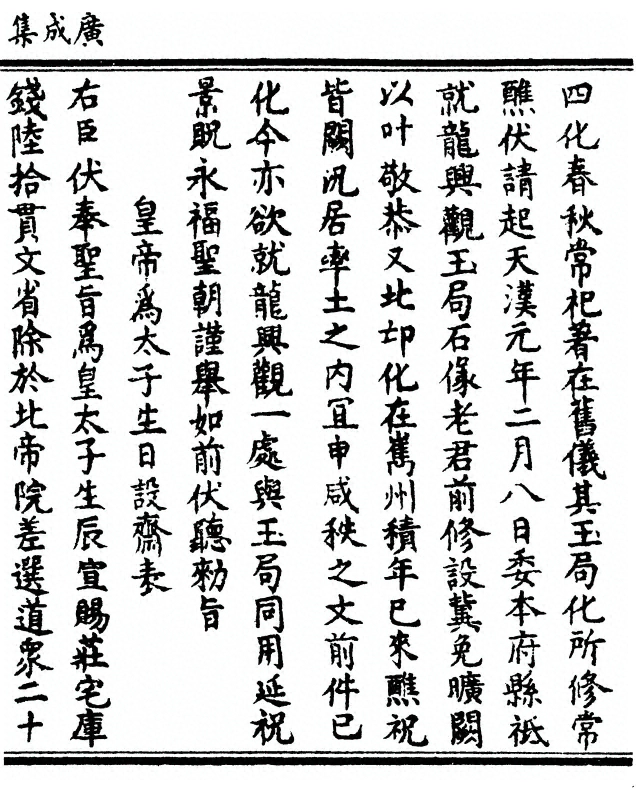 廣成集
四化春秋常祀著在舊儀其玉局化所修常
醮伏請起天漢元年二月八日委本府縣祗
就龍興觀玉局石像老君前修設冀免曠闕
以叶敬恭又北邙化在嶲州積年已來醮祝
皆闕況居率土之内冝申咸秩之文前件已
化今亦欲就龍興觀一處與玉局同用延祝
景貺永福聖朝謹舉如前伏聽勑旨
皇帝爲太子生日設齋表
右臣伏奉聖旨爲皇太子生辰宣賜莊宅庫
錢陸拾貫文省除於北帝院差選道衆二十